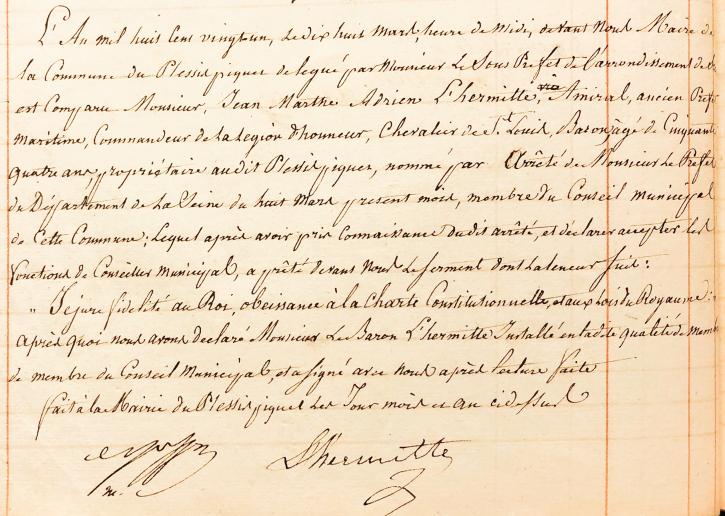 L'An mil huit Cent vingt-un, Le dix huit Mars, heure de Midi, devant Nous Maire de
la Commune du Plessispiquet delegué par Monsieur Le Sous Prefet de l'arrondissement de
est Comparu Monsieur, Jean Marthe Adrien L'hermitte, vice Amiral, ancien Préfet
Maritime, Commandeur de la Legion d'honneur, Chevalier de St Louis, Baron, agé de Cinquante
quatre ans, propriétaire audit Plessispiquet, nommé par Arrêté de Monsieur Le Préfet
du Département de La Seine du huit Mars present mois, membre du Conseil Municipal
de Cette Commune; Lequel après avoir pris Connaissance dudit arrêté, et déclarer accepter les
fonctions de Conseiller Municipal, a prêté devant Nous Le ferment dont la teneur suit:
" Je jure fidelité au Roi, obeissance à la Charte Constitutionnelle, et aux Lois du Royaume:
Après quoi nous avons declaré Monsieur Le Baron L'hermitte Installé en ladte qualité de Memb
de membre du Conseil Municipal, et a signé avec Nous après lecture faite
fait à la Mairie du Plessispiquet Les Jour mois et an cidessus
L'hermitte